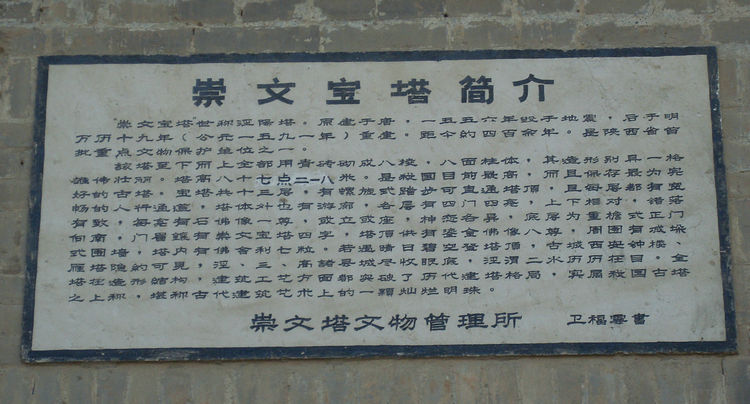 崇文宝塔简介
"崇文宝塔"世称泾阳塔。原建于唐,一五五六年毁于地震,后于明
万历十九年(公元一五九一年)重建。距今约四百余年。是陕西省首
批重点文物保护单位之一。
该塔至下而上全部用青砖砌成八棱,八面柱体,其造形别具一格
雄伟壮丽。塔高八十七点二一八米。是我国目前最高,而且保存最为完
好的古塔。宝塔共十三层,有螺旋踏步可直通塔顶,每层都有宽
畅的人行通道。塔体外有游廊,层有四门四亮,上下相对,错落
有致,每亮有石佛像一尊,或立或座,神态各异,底层为重檐式正门
向南,门眉镶有崇文宝塔四字。塔顶供有鎏金佛像八尊,周围有城垛
式围墙,塔内有佛舍利七粒。若遇晴日碧空登塔顶,古城西安钟楼、
雁塔隐约可见,泾、三、高诸县城尽收眼底,泾渭二水历历在目。全
塔在造形结构,建筑工艺方面都突破了历代建塔格局,实属我国古塔
之上称,堪称古代建筑艺术上的一颗灿烂明珠。
崇文塔文物管理所 卫福云书